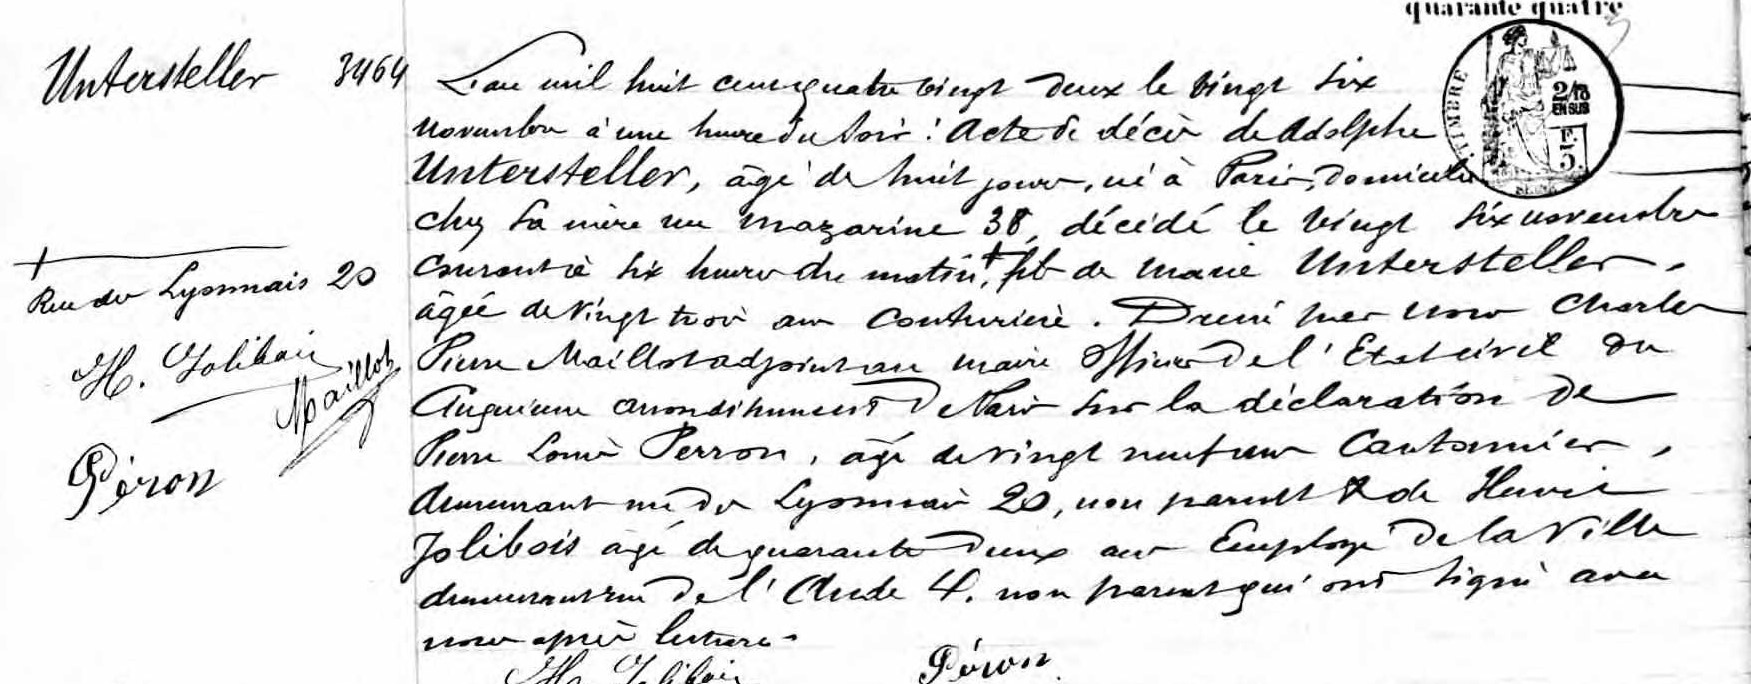 quarante quatre
Untersteller 3464
L'an mil huit cent quatre vingt deux le vingt six
novembre à une heure du soir : Acte de décès de Adolphe
Untersteller, âgé de huit jours, né à Paris, domicilié
chez sa mère rue mazarine 38, décédé le vingt six novembre
courant à six heures du matin, + fils de marie Untersteller,
âgée de vingt trois ans Couturière. Dressé par nous Charles
Pierre Maillot adjoint au maire officier de l'Etat civil du
Cinquième arrondissement de Paris sur la déclaration de
Pierre Louis Perron, âgé de vingt neuf ans Cantonnier,
demeurant rue des Lyonnais 20, non parent & de Henri
Jolibois âgé de quarante deux ans Employé de la Ville
demeurant rue de l'Aude 4, non parent qui ont signé avec
nous après lecture.
+
Rue des Lyonnais 20
H. Jolibois
Maillot
Péron
H. Jolibois Péron
TIMBRE
2/10
EN SUS
SEINE